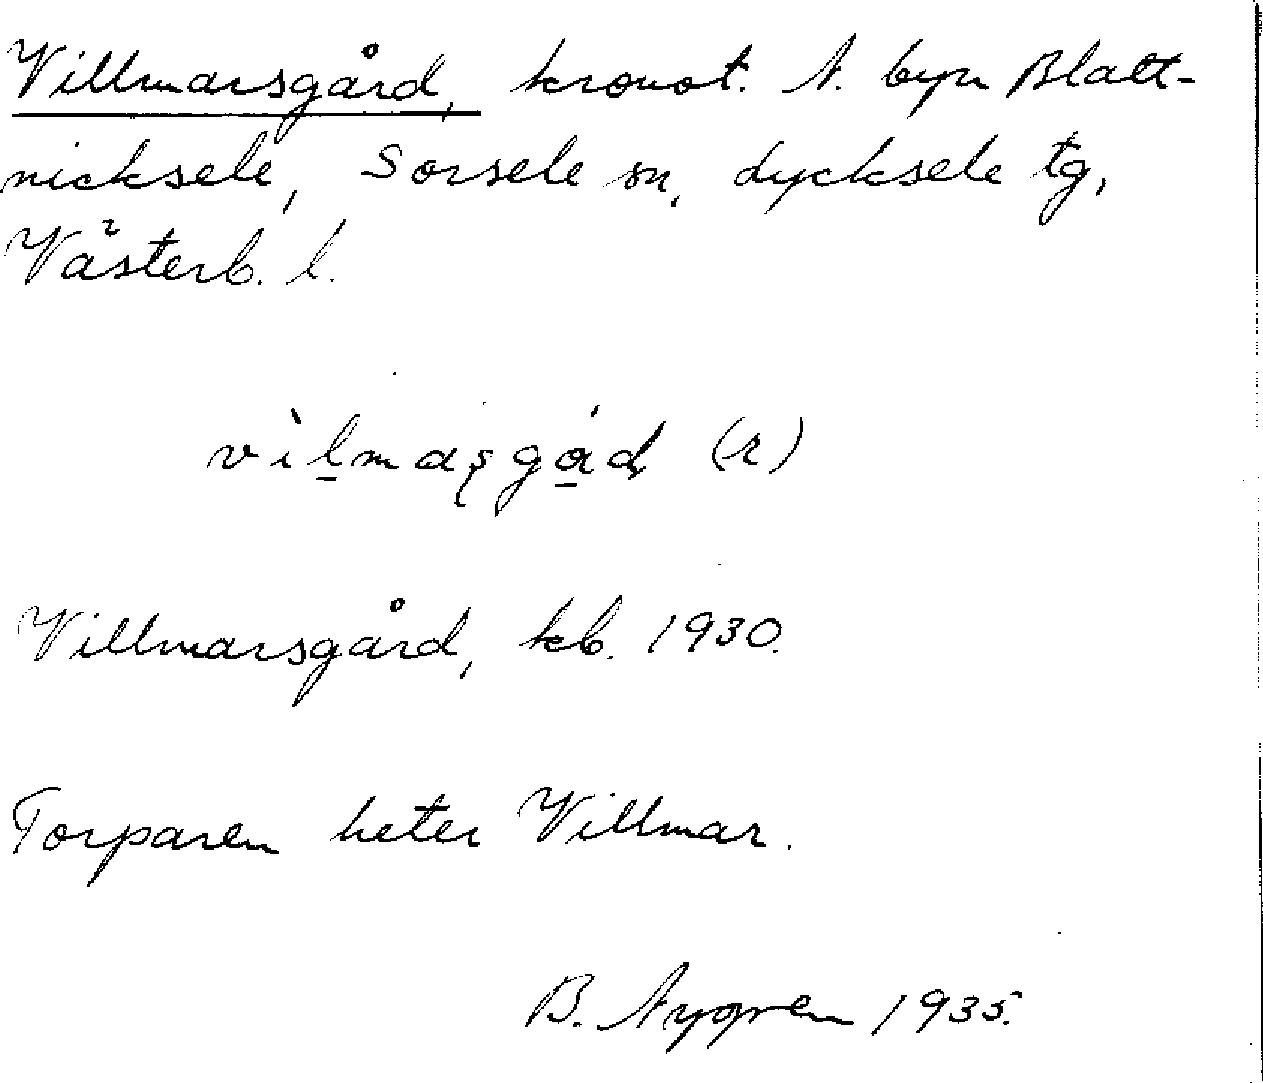 Villmarsgård, kronot. N. byn Blatt-
nicksele, Sorsele sn, Lycksele tg,
Västerb. l.
(r)
Villmarsgård, kb. 1930.
Torparen heter Villmar.
B. Nygren 1935.